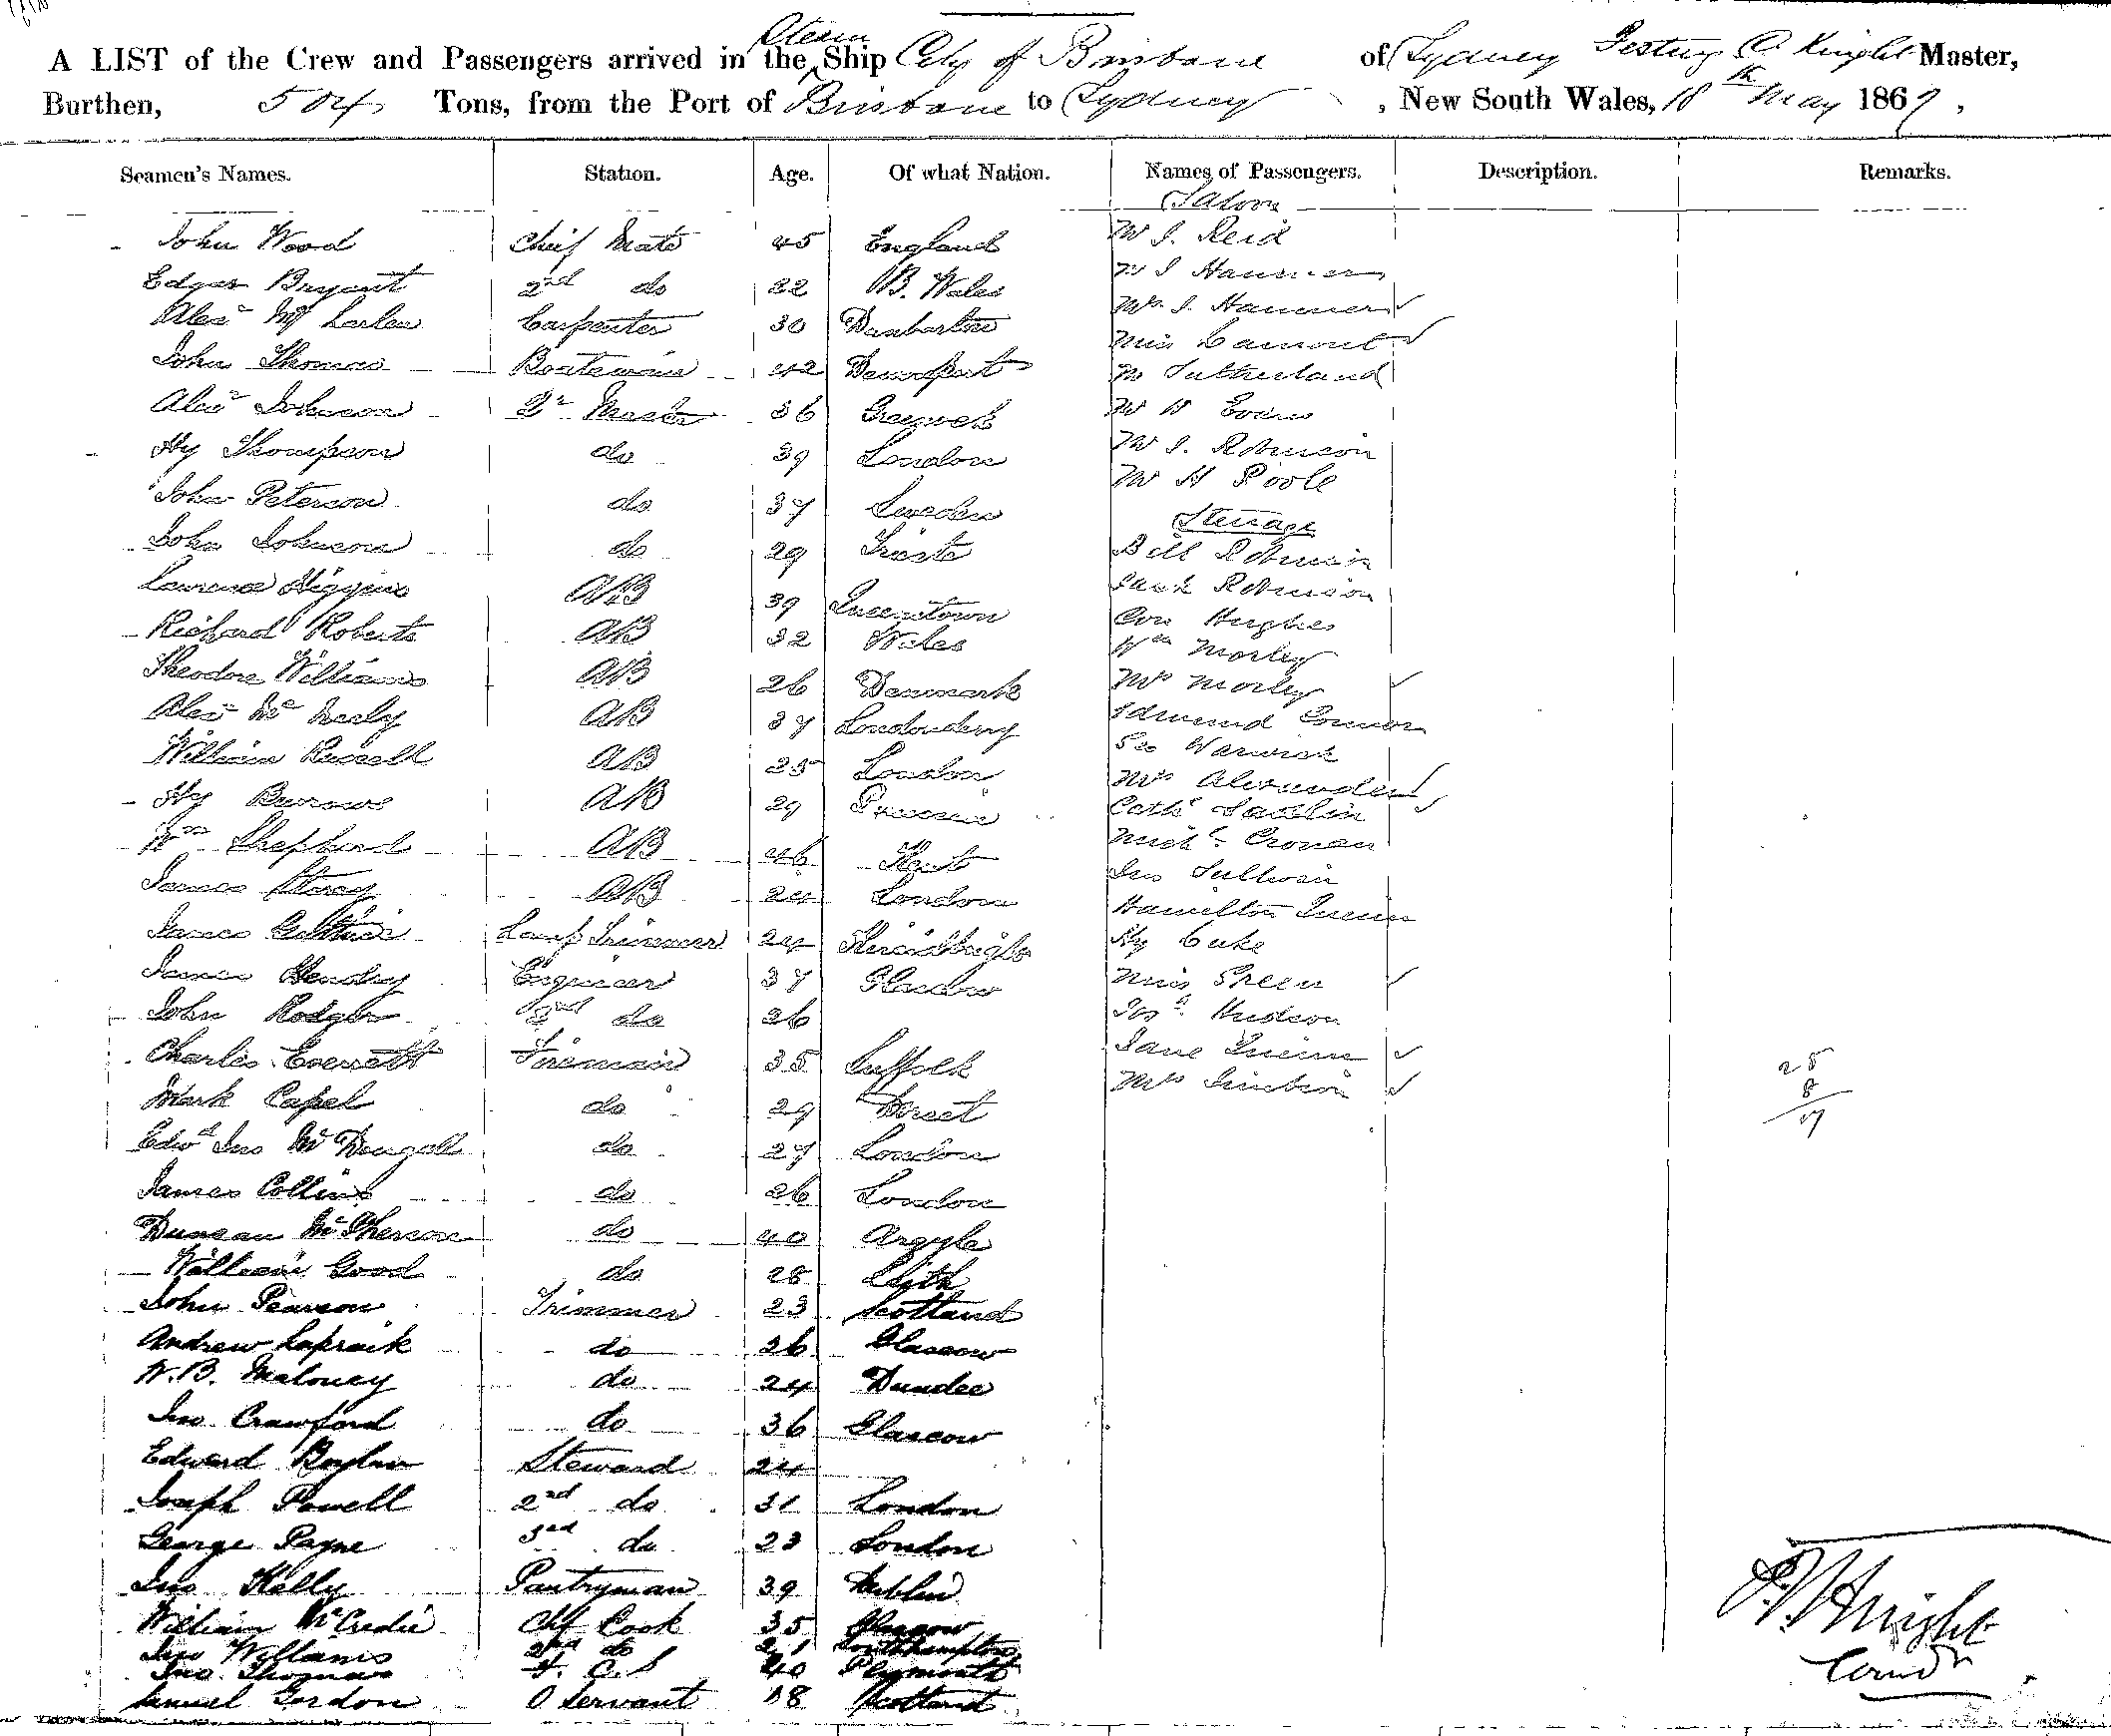 A LIST of the Crew and Passengers arrived in the Steam Ship City of Brisbane of Sydney Knight Master,
Burthen, 504 Tons, from the Port of Brisbane to Sydney, New South Wales, 18th May 1869,
Seamen's Names. Station. Age. Of what Nation. Names of Passengers. Description. Remarks.
Saloon
John Wood Chief Mate 45 England Mr J. Reid
Edgar Bryant 2nd do 22 Wales Mr J Hammer
Alexr Mc Farlan Carpenter 30 Dunbarton Mrs J. Hammer ✓
John Thomas Boatswain 42 Devonport Miss Lamont ✓
Alexr Johnson Qr Master 36 Greenock Mr Sutherland
Hy Thompson do 39 London Mr W Evans
John Peterson do 37 Sweden Mr J. Robinson
John Johnson do 29 Trieste Mr H Poole
Steerage
Lawrence Higgins AB 39 Queenstown Bill Robinson
Richard Roberts AB 32 Wales Jack Robinson
Theodore Williams AB 26 Denmark Con Hughes
Alexr Mc Neely AB 37 Londonderry Wm Morley
William Russell AB 25 London Mrs Morley ✓
Hy Burrows AB 29 Prussia Edmund Connor
Wm Shepherd AB 46 Kent Geo Warwick
James Storey AB 24 London Mrs Alexander ✓
James Guthrie Lamp Trimmer 24 Cathe ✓
James Hendry Engineer 37 Glasgow Michl Cronan
John Rodger 2nd do 26 Jno Sullivan
Charles Everett Fireman 35 Suffolk Hamilton Quinn
Mark Capel do 29 Dorset Hy Cuke
Edwd Jno McDougall do 27 London Miss Green ✓
James Collins do 26 London Josh Hudson
Duncan McPherson do 40 Argyle Jane Quinn ✓
William Good do 28 Leith Mrs ✓
25
8
17
John Pearson Trimmer 23 Scotland
Andrew Lapraik do 26 Glascow
W.B. Maloney do 24 Dundee
Jno Crawford do 36 Glascow
Edward Boylan Steward 24
Joseph Powell 2nd do 31 London
George Payne 3rd do 23 London
Jno Kelly Pantryman 39 Dublin
William McCredie Chf Cook 35 Glasgow
Jno Williams 2nd do 21 Southampton
Jno. Thomas 40 Plymouth
Samuel Gordon O Servant 18 Scotland
Knight
Comdr